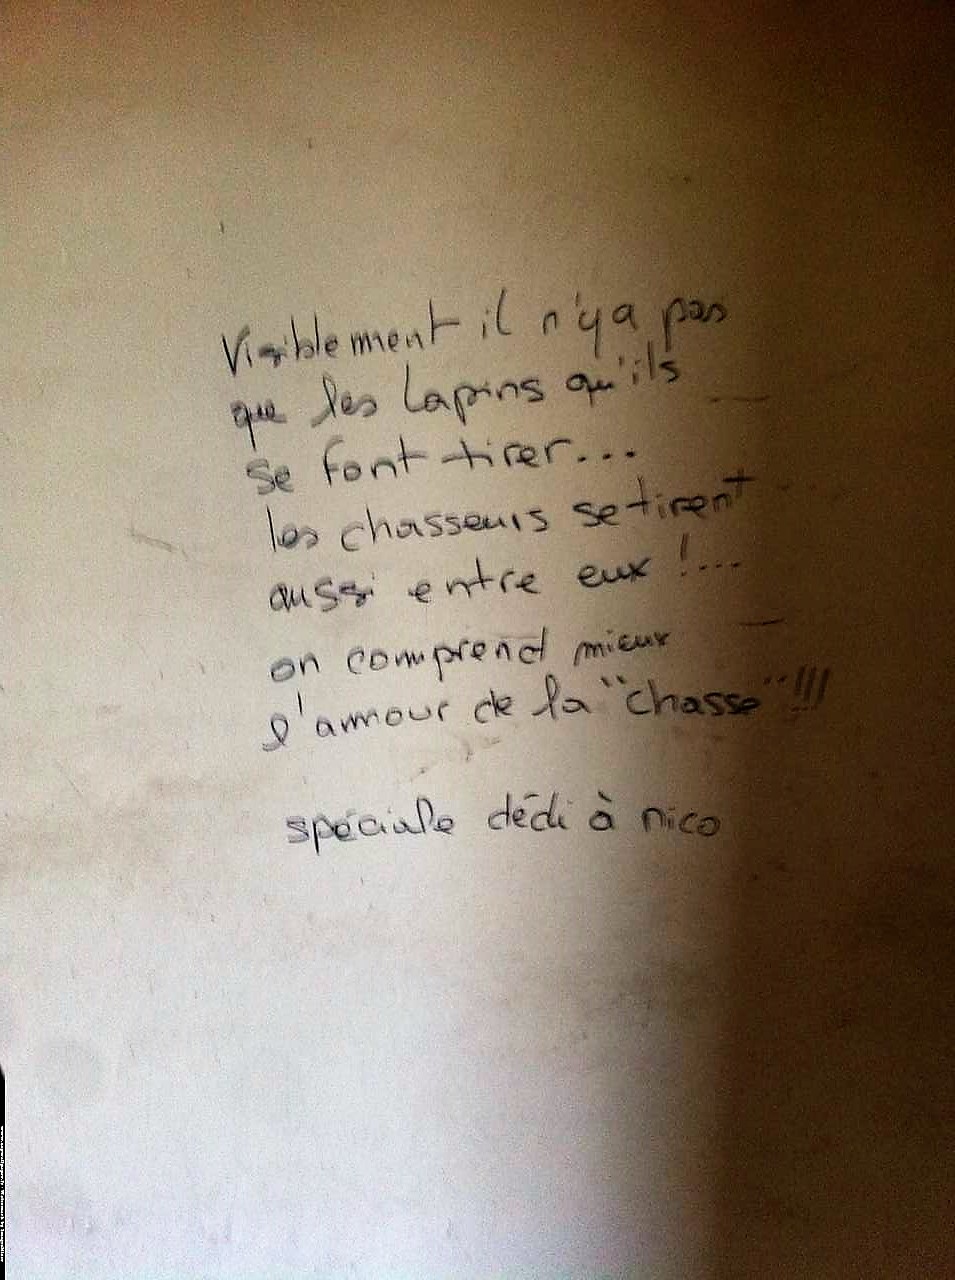 Visiblement il n'y a pas
que les Lapins qu'ils
se font tirer...
les chasseurs se tirent
aussi entre eux !...
on comprend mieux
l'amour de la "chasse" !!!
spéciale dédi à nico